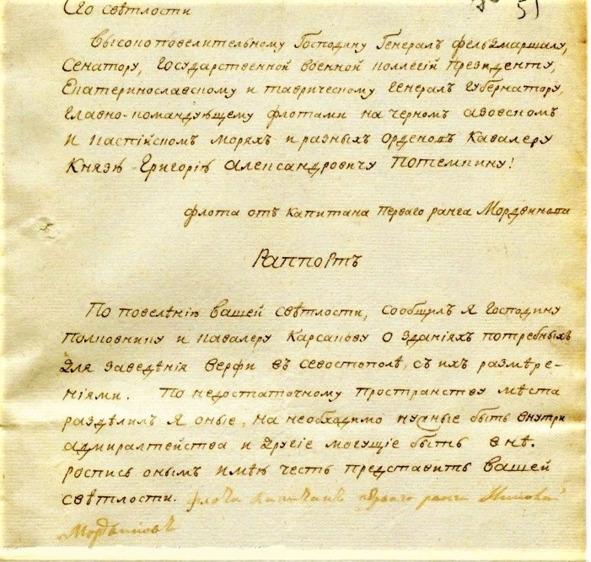 51
Его свѣтлости
Высокоповелительному Господину Генералъ фельдмаршалу,
Сенатору, Государственной военной коллегіи Президенту,
Екатеринославскому и таврическому Генералъ Губернатору,
Главно-командующему флотами на черномъ азовскомъ
и каспійскомъ моряхъ и разныхъ орденовъ Кавалеру
Князь Григорію Александровичу Потемкину!
флота отъ капитана перваго ранга Мордвинова
Раппортъ
По повелѣнію вашей свѣтлости, сообщилъ я Господину
Полковнику и кавалеру Корсакову о зданіяхъ потребныхъ
для заведѣнія верфи въ севостополѣ, съ ихъ размѣре-
ніями. По недостаточному пространству мѣста
раздѣлилъ я оные, на необходимо нужные быть внутри
адмиралтейства и другіе могущіе быть внѣ.
роспись онымъ имѣю честь представить вашей
свѣтлости. флота капитанъ перваго ранга
Мордвиновъ